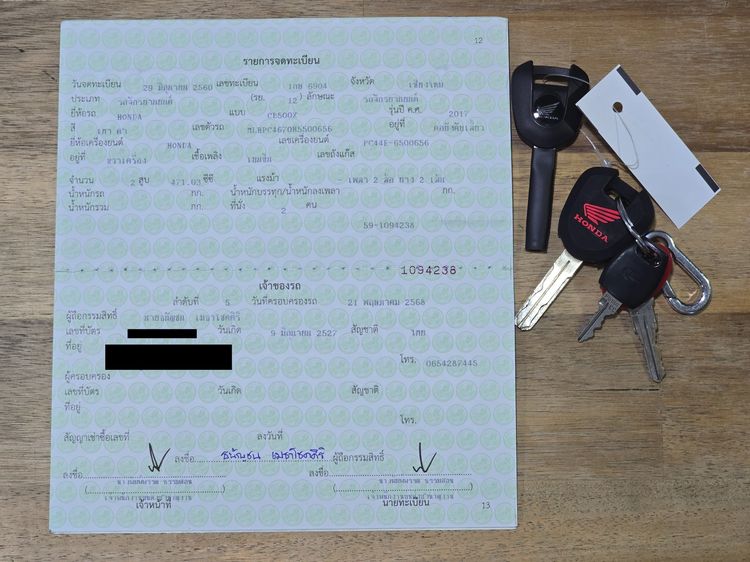 12
รายการจดทะเบียน
วันจดทะเบียน 29 มิถุนายน 2560 เลขทะเบียน 1กข 6904 จังหวัด เชียงใหม่
ประเภท รถจักรยานยนต์ (รย. 12) ลักษณะ รถจักรยานยนต์
ยี่ห้อรถ HONDA แบบ CB500X รุ่นปี ค.ศ. 2017
สี เทา ดำ เลขตัวรถ MLHPC4670H5500656 อยู่ที่
ยี่ห้อเครื่องยนต์ HONDA เลขเครื่องยนต์ PC44E-6500656
อยู่ที่ ขวาเครื่อง เชื้อเพลิง เบนซิน เลขถังแก๊ส
จำนวน 2 สูบ 471.03 ซีซี แรงม้า เพลา 2 ล้อ ยาง 2 เส้น
น้ำหนักรถ กก. น้ำหนักบรรทุก/น้ำหนักลงเพลา กก.
น้ำหนักรวม กก. ที่นั่ง 2 คน
59-1094238
1094238
เจ้าของรถ
ลำดับที่ 5 วันที่ครอบครองรถ 21 พฤษภาคม 2568
ผู้ถือกรรมสิทธิ์ นายธนัญชน เมธาโชติศิริ
เลขที่บัตร วันเกิด 9 มิถุนายน 2527 สัญชาติ ไทย
ที่อยู่
โทร. 0654287445
ผู้ครอบครอง
เลขที่บัตร วันเกิด สัญชาติ
ที่อยู่
โทร.
สัญญาเช่าซื้อเลขที่ ลงวันที่
ลงชื่อ ธนัญชน เมธาโชติศิริ ผู้ถือกรรมสิทธิ์
ลงชื่อ ลงชื่อ
เจ้าหน้าที่ นายทะเบียน
13
HONDA
HONDA